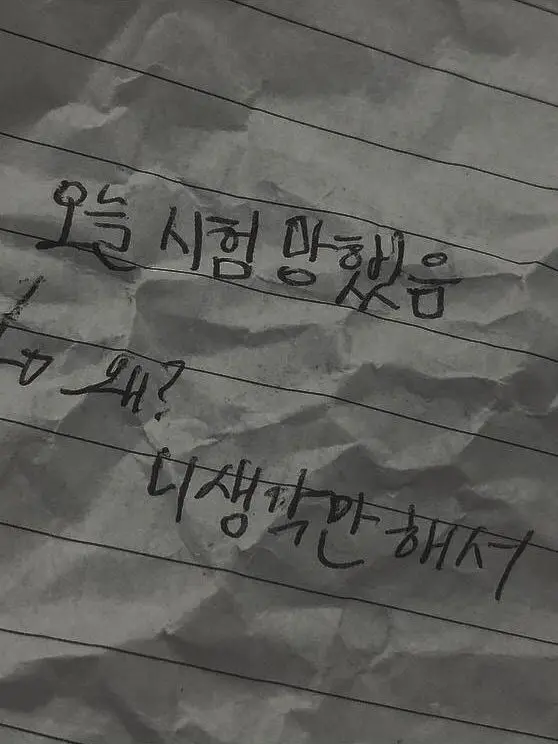 오늘 시험 망했음
왜?
니 생각만 해서